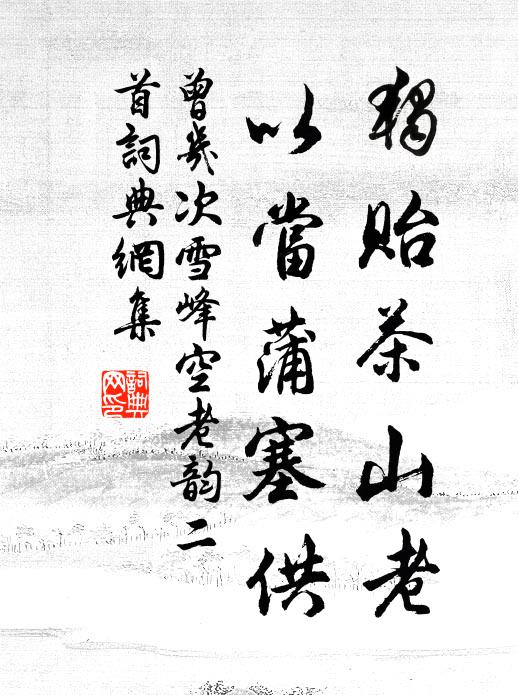 獨貽茶山老
以當蒲塞供
曾幾次雪峰空老韵二
首詞典網集
詞典
网印